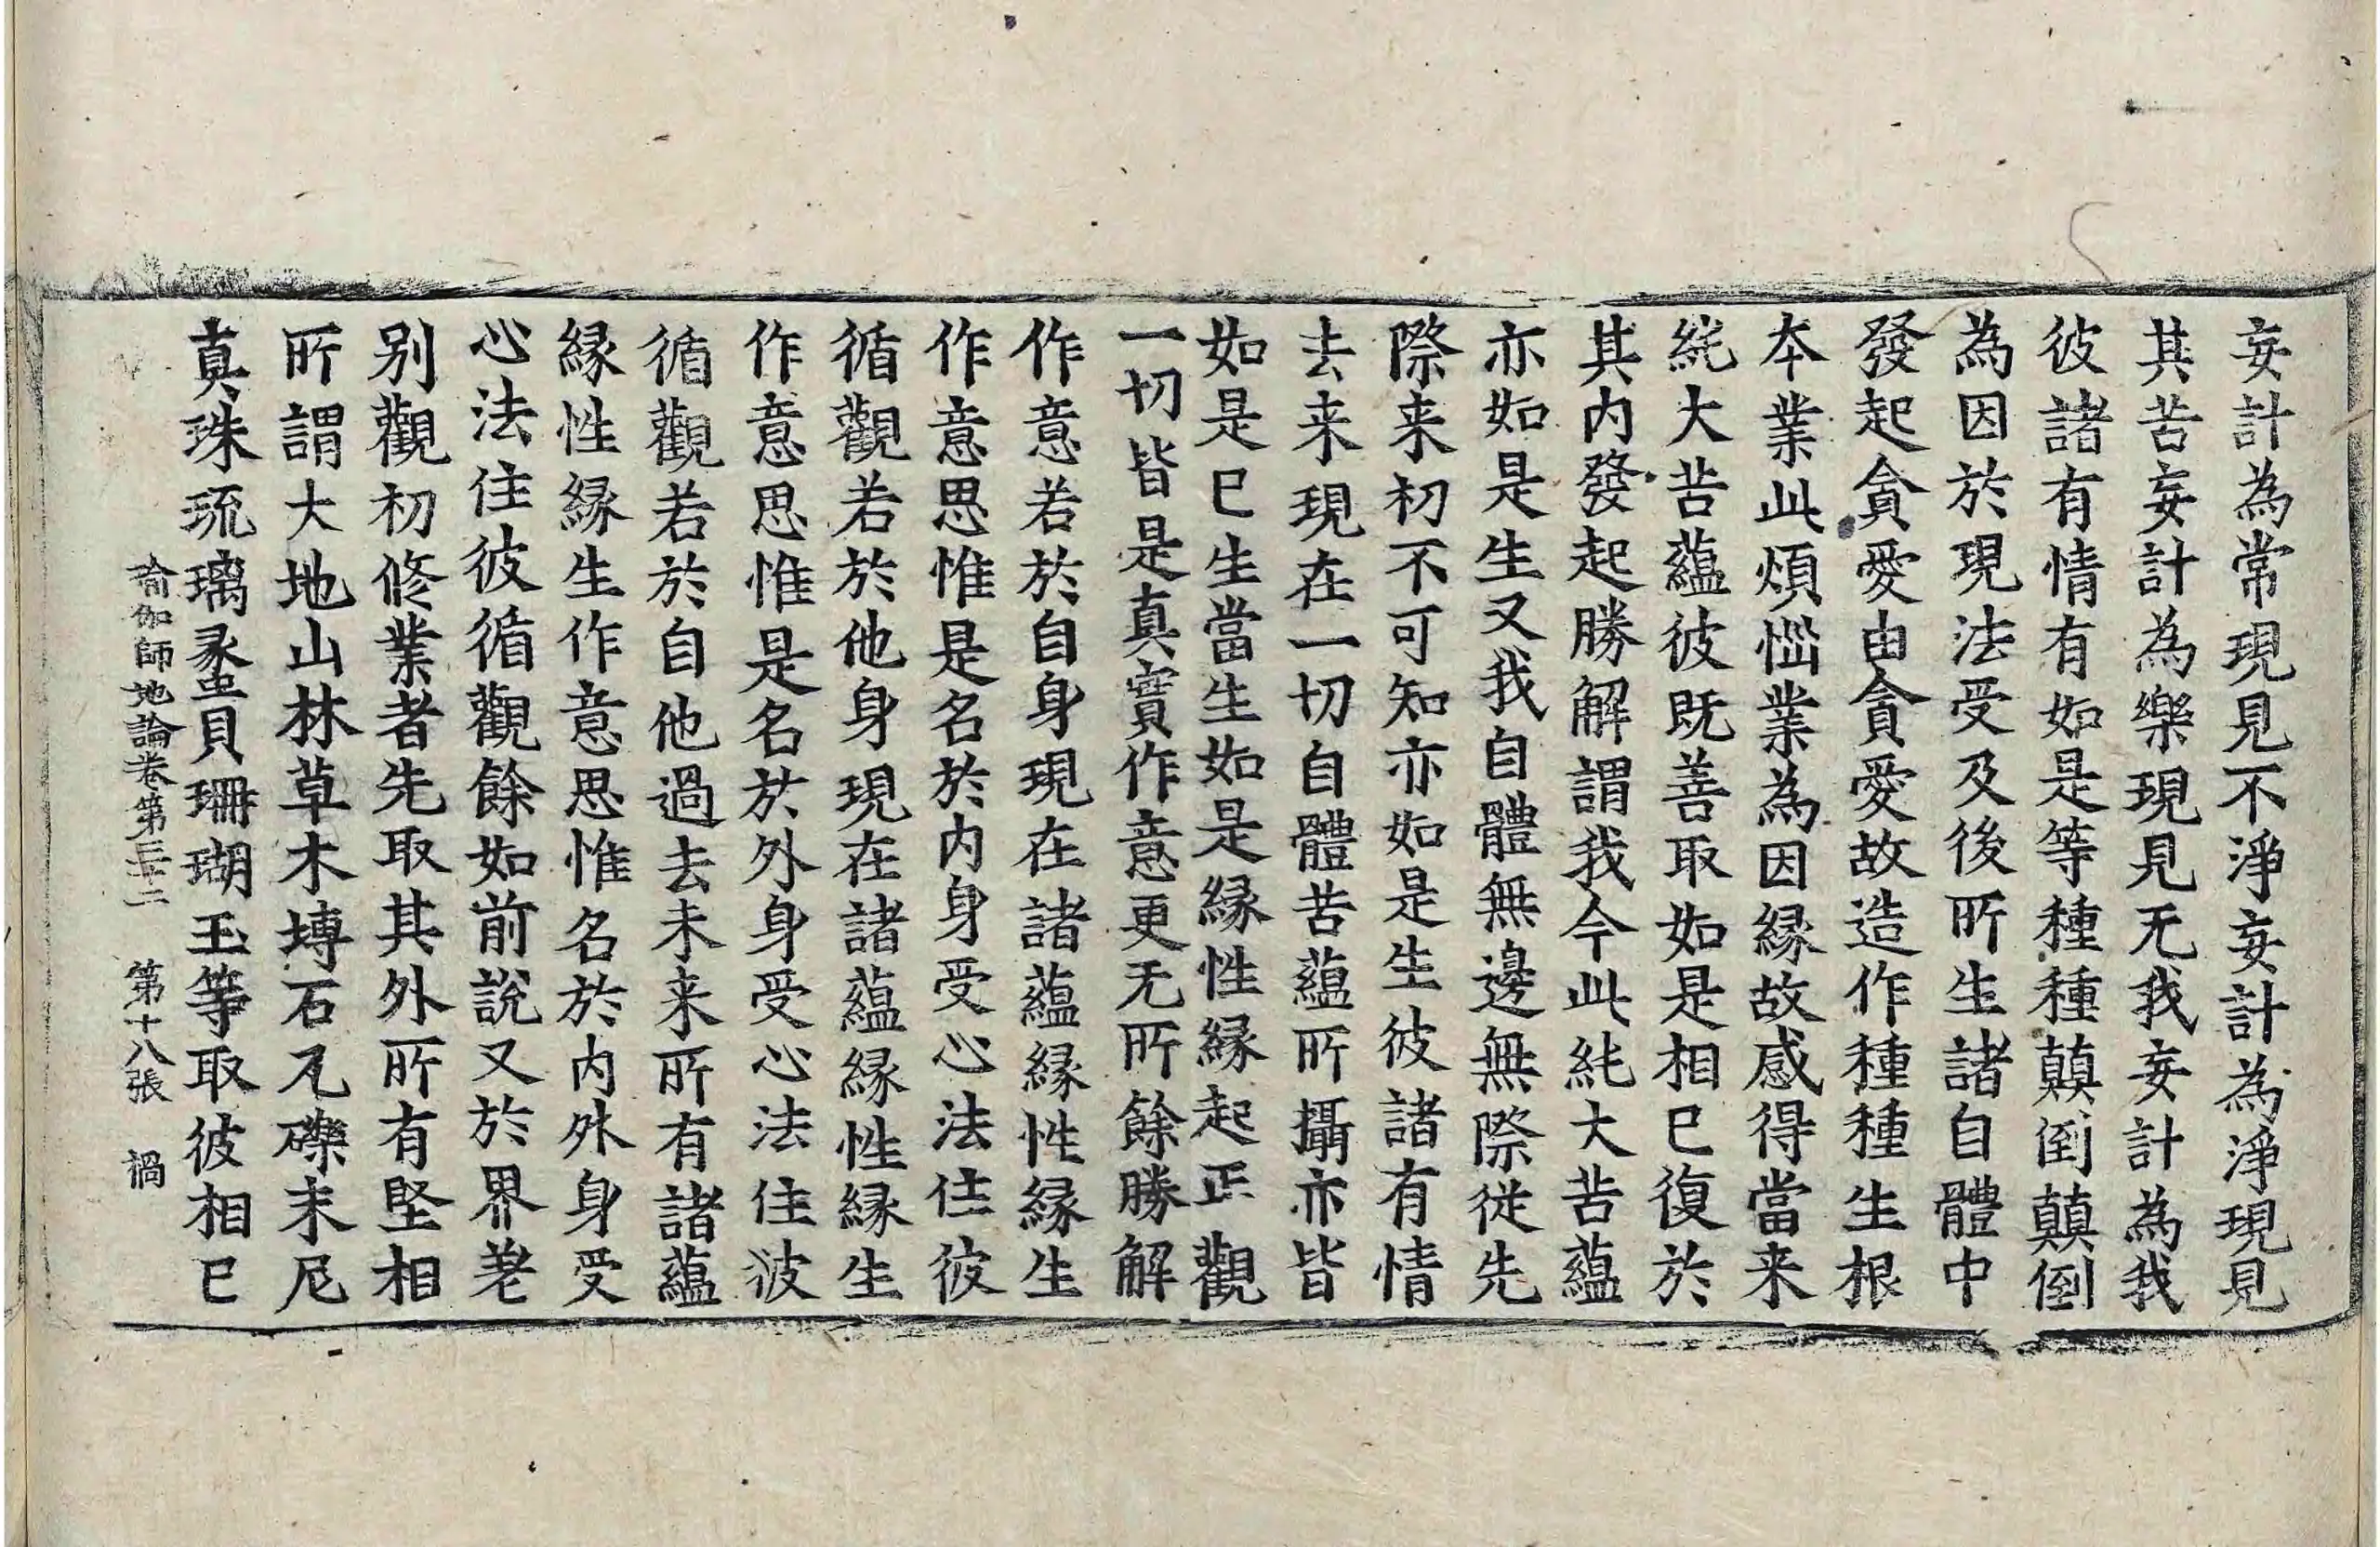 妄計為常現見不淨妄計為淨現見
其苦妄計為樂現見无我妄計為我
彼諸有情有如是等種種顛倒顛倒
為因於現法受及後所生諸自體中
發起貪愛由貪愛故造作種種生根
本業此煩惱業為因緣故感得當来
純大苦蘊彼既善取如是相已復於
其内發起勝解謂我今此純大苦蘊
亦如是生又我自體無邊無際從先
際来初不可知亦如是生彼諸有情
去来現在一切自體苦蘊所攝亦皆
如是已生當生如是緣性緣起正觀
一切皆是真實作意更无所餘勝解
作意若於自身現在諸蘊緣性緣生
作意思惟是名於内身受心法住彼
循觀若於他身現在諸蘊緣性緣生
作意思惟是名於外身受心法住彼
循觀若於自他過去未来所有諸蘊
緣性緣生作意思惟名於内外身受
心法住彼循觀餘如前說又於界差
別觀初修業者先取其外所有堅相
所謂大地山林草木塼石瓦礫末尼
真珠琉璃螺貝珊瑚玉等取彼相已
瑜伽師地論卷第三十二　第十八張　禍